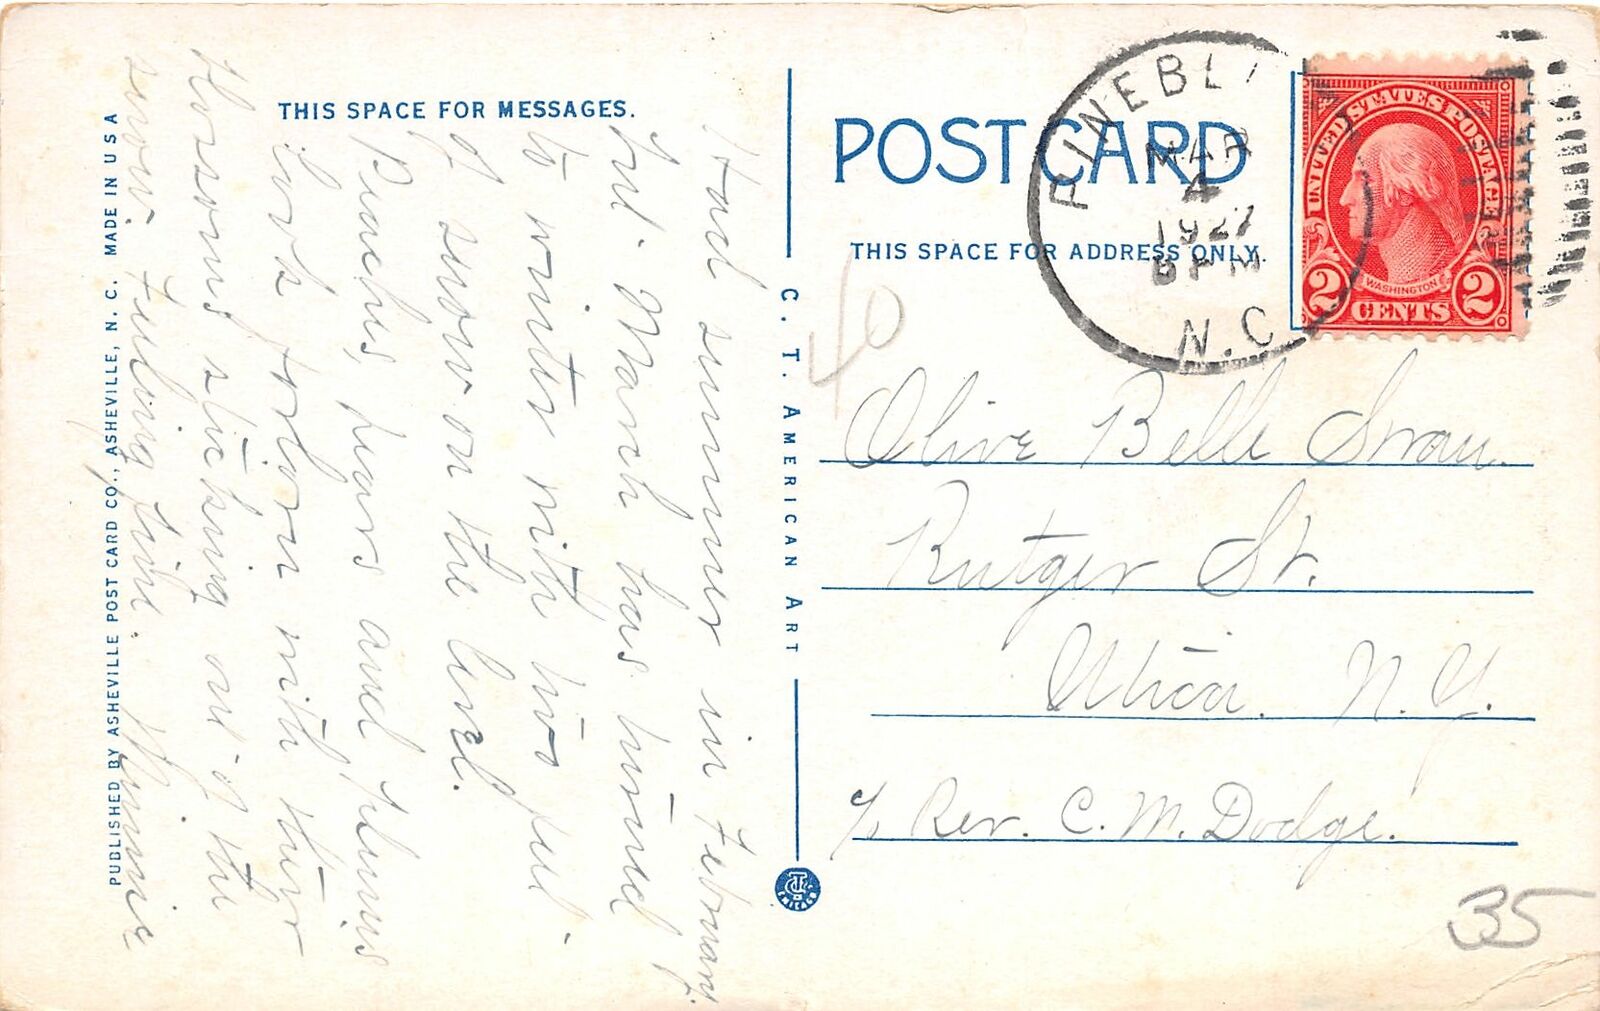 THIS SPACE FOR MESSAGES.
Had summer in February.
but March has turned
to winter with two feet
of snow on the level.
Peaches, pears and plums
look forlorn with their
blossoms sticking out of the
snow. Feeling fine. Minnie
PUBLISHED BY ASHEVILLE POST CARD CO., ASHEVILLE, N. C. MADE IN U S A
C. T. AMERICAN ART
CT
CHICAGO
POST CARD
THIS SPACE FOR ADDRESS ONLY.
MAR
4
1927
PM
N.C.
UNITED STATES POSTAGE
WASHINGTON
2 CENTS 2
40
Olive Belle Swan.
Rutger St.
Utica. N. Y.
c/o Rev. C. M. Dodge.
35